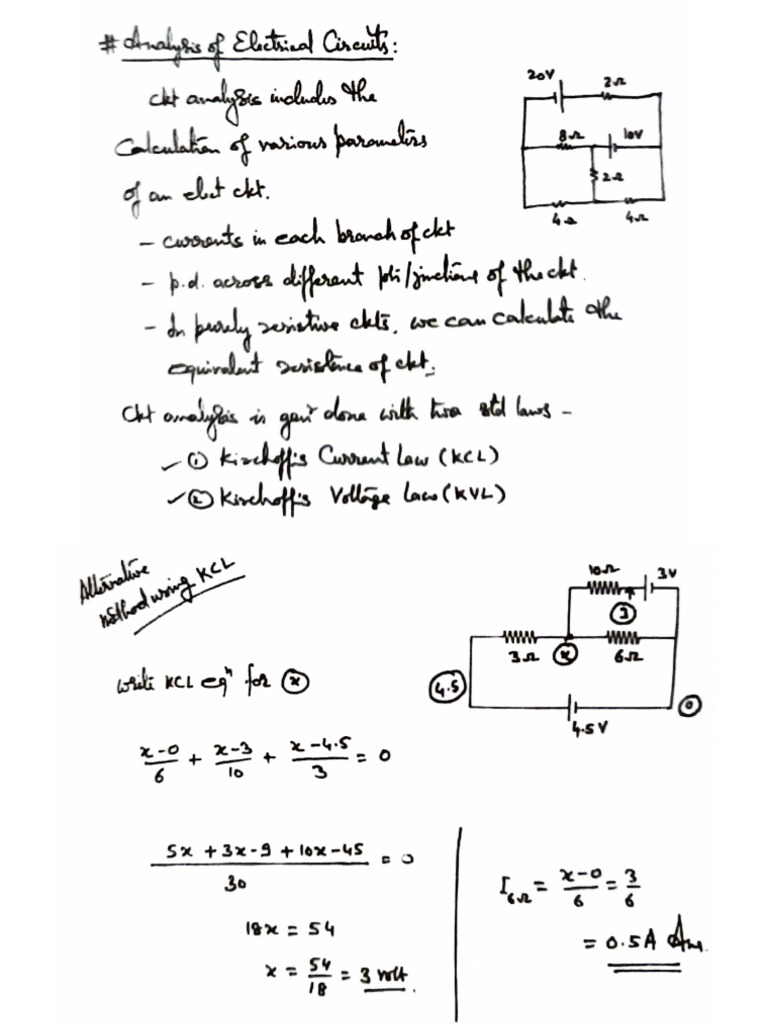 # Analysis of Electrical Circuits:
ckt analysis includes the
Calculation of various parameters
of an elect ckt.
- currents in each branch of ckt
- p.d. across different pts/junctions of the ckt.
- In purely resistive ckts, we can calculate the
equivalent resistance of ckt.
20V
2Ω
8Ω
10V
2Ω
4Ω
4Ω
Ckt analysis is done with two std laws -
① Kirchoff's Current Law (KCL)
② Kirchoff's Voltage Law (KVL)
Alternative
method using KCL
10Ω
3V
3
3Ω
x
6Ω
4.5
0
4.5V
write KCL eqⁿ for x
x-0/6 + x-3/10 + x-4.5/3 = 0
5x + 3x-9 + 10x-45/30 = 0
18x = 54
x = 54/18 = 3 volt.
I6Ω = x-0/6 = 3/6
= 0.5A Ans.